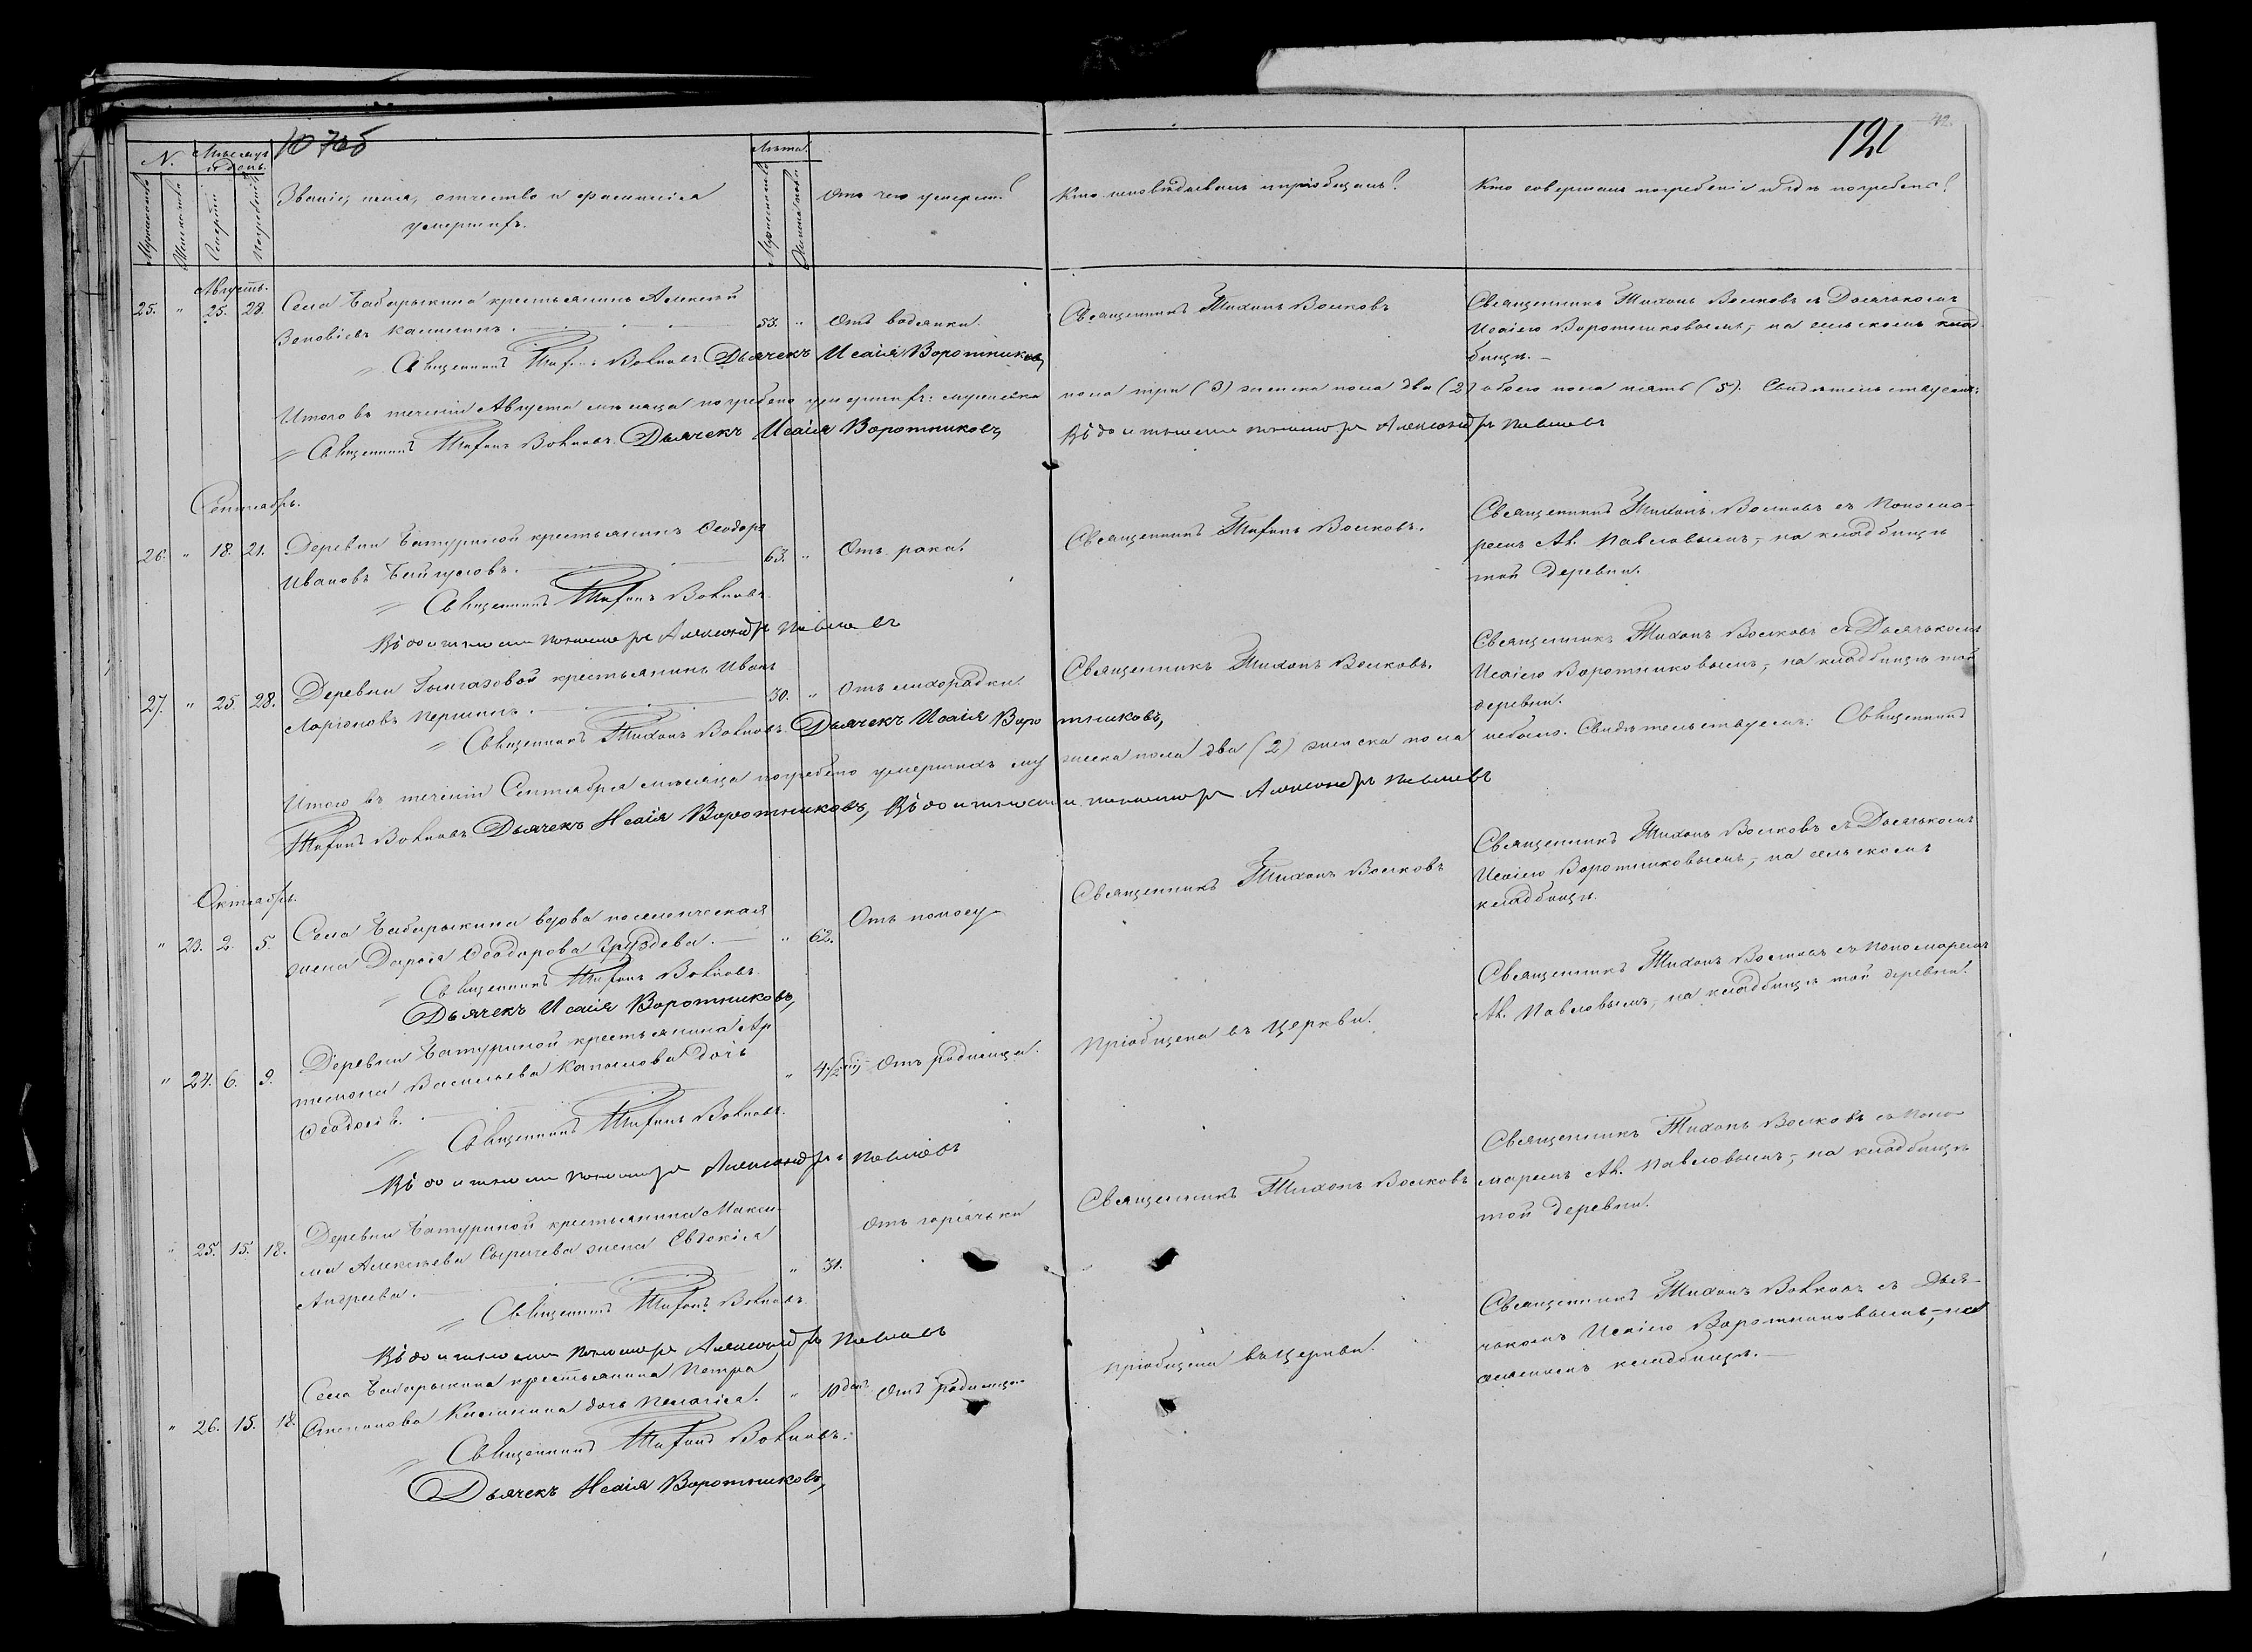 10 705
121
N.
Мѣсяцъ и день.
Мужескаго
Женскаго
Смерти
Погребенія
Званіе, имя, отчество и фамилія
умершихъ.
Лѣта.
Мужескаго
Женскаго
Отъ чего умеръ?
Кто исповѣдывалъ и пріобщалъ?
Кто совершалъ погребеніе и гдѣ погребены?
Августъ.
25. " 25. 28. Села Бабарыкина крестьянинъ Алексѣй
Зиновіевъ Калининъ. 53. " Отъ водянки.
Священникъ Тихонъ Волковъ
Священникъ Тихонъ Волковъ съ Дьячькомъ
Исаіею Воротниковымъ, на сельскомъ клад
бищѣ.
Священникъ Тихонъ Волковъ Дьячекъ Исаія Воротниковъ,
Итого въ теченіи Августа мѣсяца погребено умершихъ: мужеска пола три (3) женска пола два (2) обоего пола пять (5). Свидѣтельствуемъ:
Священникъ Тихонъ Волковъ Дьячекъ Исаія Воротниковъ, Въ должности пономаря Александръ Павловъ
Сентябрь.
26. " 18. 21. Деревни Батуриной крестьянинъ Ѳеодоръ
Ивановъ Байгуловъ. 63. " Отъ рака.
Священникъ Тихонъ Волковъ.
Священникъ Тихонъ Волковъ съ Понома-
ремъ Ал. Павловымъ, на кладбищѣ
той деревни.
Священникъ Тихонъ Волковъ.
Въ должности пономаря Александръ Павловъ
27. " 25. 28. Деревни крестьянинъ Иванъ
Ларіоновъ Першинъ. 30. " Отъ лихорадки.
Священникъ Тихонъ Волковъ.
Священникъ Тихонъ Волковъ съ Дьячькомъ
Исаіею Воротниковымъ, на кладбищѣ той
деревни.
Священникъ Тихонъ Волковъ. Дьячекъ Исаія Воротниковъ,
Итого въ теченіи Сентября мѣсяца погребено умершихъ мужеска пола два (2) женска пола небыло. Свидѣтельствуемъ: Священникъ
Тихонъ Волковъ Дьячекъ Исаія Воротниковъ, Въ должности пономаря Александръ Павловъ
Октябрь.
" 23. 2. 5. Села Бабарыкина вдова поселенческая
жена Дарья Ѳеодорова Груздева. " 62. Отъ поносу
Священникъ Тихонъ Волковъ
Священникъ Тихонъ Волковъ съ Дьячькомъ
Исаіею Воротниковымъ, на сельскомъ
кладбищѣ.
Священникъ Тихонъ Волковъ.
Дьячекъ Исаія Воротниковъ,
" 24. 6. 9. Деревни Батуриной крестьянина Ар
темона Васильева дочь
Ѳеодосія. " 4 1/2 Отъ родимца.
Пріобщена въ Церкви.
Священникъ Тихонъ Волковъ съ Пономаремъ
Ал. Павловымъ, на кладбищѣ той деревни.
Священникъ Тихонъ Волковъ.
Въ должности пономаря Александръ Павловъ
" 25. 15. 18. Деревни Батуриной крестьянина Макси-
ма Алексѣева Сыричева жена Евдокія
Андреева. " 31. Отъ горячьки
Священникъ Тихонъ Волковъ
Священникъ Тихонъ Волковъ съ Поно-
маремъ Ал. Павловымъ, на кладбищѣ
той деревни.
Священникъ Тихонъ Волковъ.
Въ должности пономаря Александръ Павловъ
" 26. 15. 18. Села Бабарыкина крестьянина Петра
Степанова дочь Пелагія. " 10 дней Отъ родимца
Пріобщена въ Церкви.
Священникъ Тихонъ Волковъ съ Дья-
чькомъ Исаіею Воротниковымъ, на
сельскомъ кладбищѣ.
Священникъ Тихонъ Волковъ.
Дьячекъ Исаія Воротниковъ,